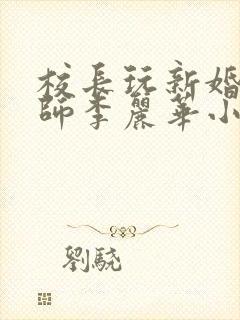 校長玩新婚
師李麗華小
劉驍